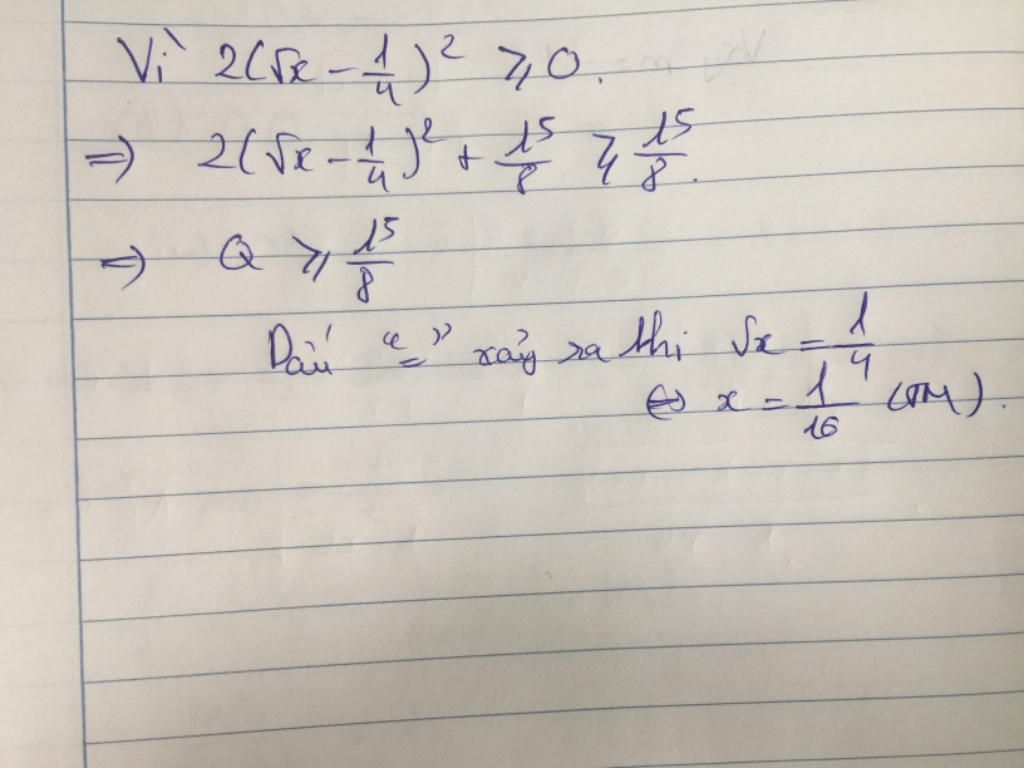 Vì 2(√x - 1/4)² ≥ 0.
⇒ 2(√x - 1/4)² + 15/8 ≥ 15/8.
⇒ Q ≥ 15/8
Dấu "=" xảy ra thi √x = 1/4
⇔ x = 1/16 (TM).